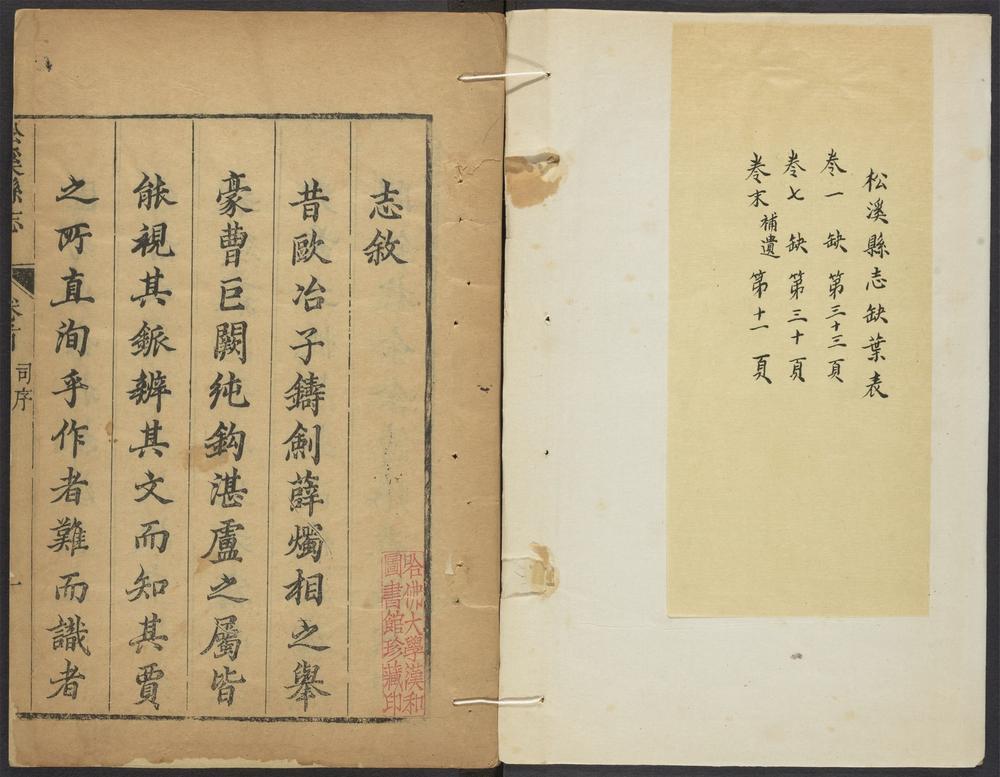 松溪縣志缺葉表
卷一 缺 第三十三頁
卷七 缺 第三十頁
卷末 補遺 第十一頁
志敘
昔歐冶子鑄劍薛燭相之舉
豪曹巨闕純鈎湛盧之屬皆
能視其鈲辨其文而知其賈
之所直洵乎作者難而識者
哈佛大學漢和
圖書館珍藏印
松溪縣志
司序
一